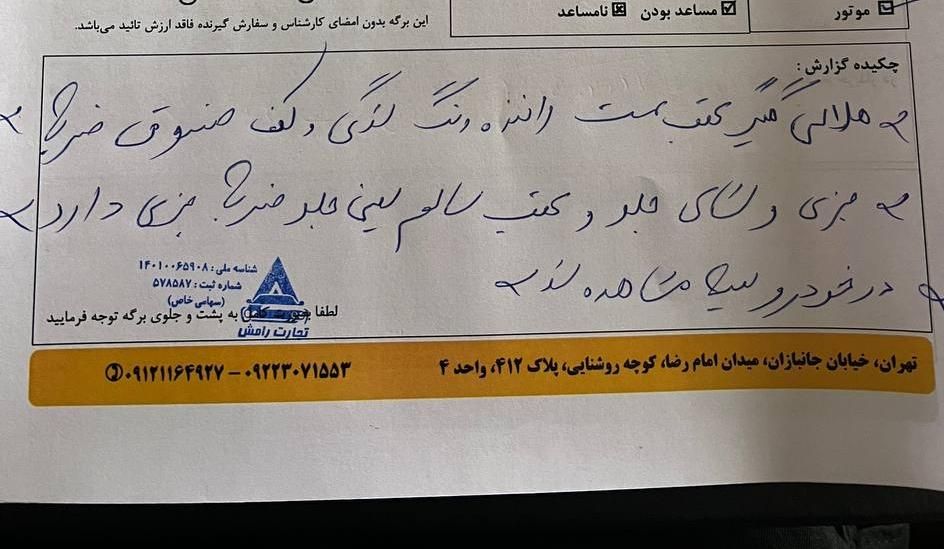 موتور
مساعد بودن نامساعد
این برگه بدون امضای کارشناس و سفارش گیرنده فاقد ارزش تائید می‌باشد.
چکیده گزارش :
گلگیر عقب سمت راننده رنگ شدگی و کف صندوق ضربه
جزی و شاسی جلو و عقب سالم سینی جلو ضربه جزی دارد
در خودرو مشاهده شد
شناسه ملی : ۱۴۰۱۰۰۶۵۹۰۸
شماره ثبت : ۵۷۸۵۸۷
(سهامی خاص)
لطفا بصورت کامل به پشت و جلوی برگه توجه فرمایید
تجارت رامش
تهران، خیابان جانبازان، میدان امام رضا، کوچه روشنایی، پلاک ۴۱۲، واحد ۴
۰۹۱۲۱۱۶۴۹۲۷ – ۰۹۲۲۳۰۷۱۵۵۳